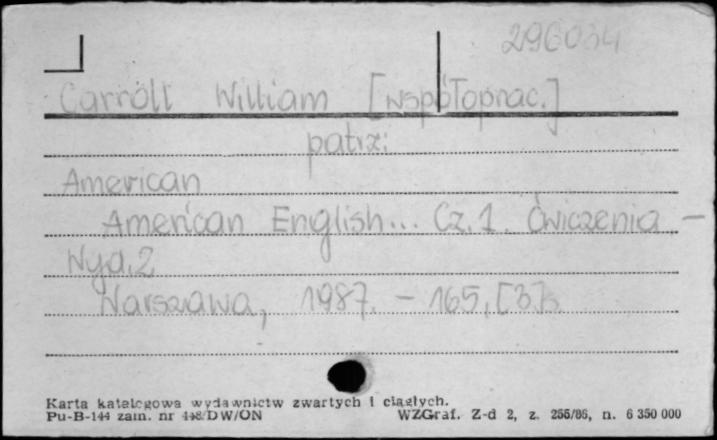 296034
Carroll William [współoprac.]
patrz:
American
American English... Cz. 1. Ćwiczenia -
Wyd. 2
Warszawa, 1987. - 165, [3] s.
Karta katalogowa wydawnictw zwartych i ciągłych.
Pu-B-144 zam. nr 448/DW/ON WZGraf. Z-d 2, z. 266/86, n. 6 350 000